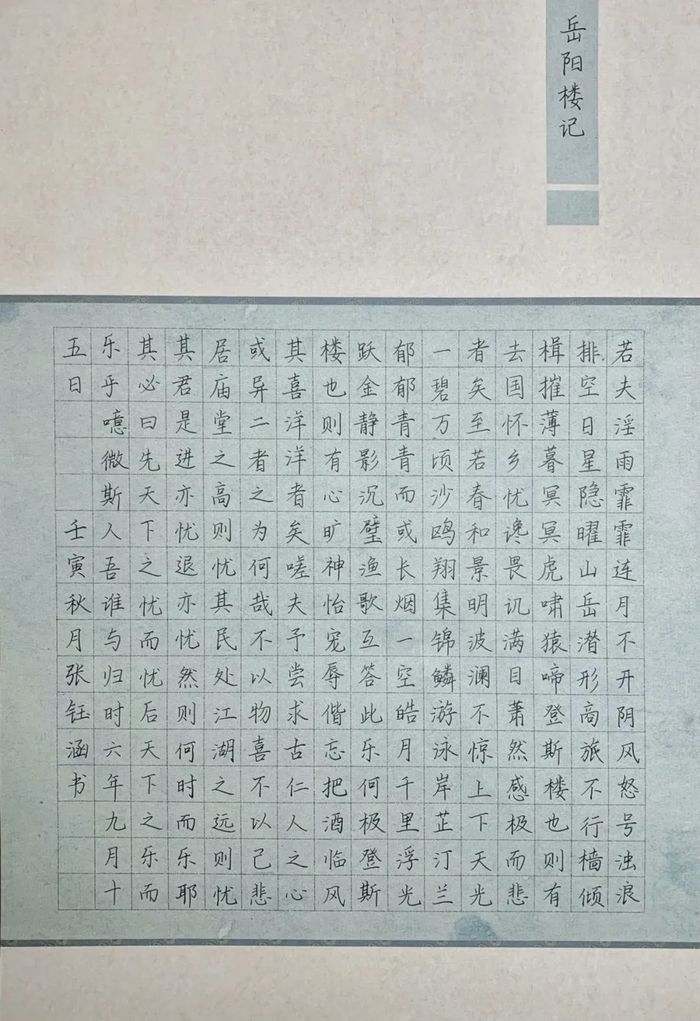 岳阳楼记
若夫淫雨霏霏连月不开阴风怒号浊浪
排空日星隐曜山岳潜形高旅不行樯倾
楫摧薄暮冥冥虎啸猿啼登斯楼也则有
去国怀乡忧谗畏讥满目萧然感极而悲
者矣至若春和景明波澜不惊上下天光
一碧万顷沙鸥翔集锦鳞游泳岸芷汀兰
郁郁青青而或长烟一空皓月千里浮光
跃金静影沉璧渔歌互答此乐何极登斯
楼也则有心旷神怡宠辱偕忘把酒临风
其喜洋洋者矣嗟夫予尝求古仁人之心
或异二者之为何哉不以物喜不以己悲
居庙堂之高则忧其民处江湖之远则忧
其君是进亦忧退亦忧然则何时而乐耶
其必曰先天下之忧而忧后天下之乐而
乐乎噫微斯人吾谁与归时六年九月十
五日 壬寅秋月张钰涵书